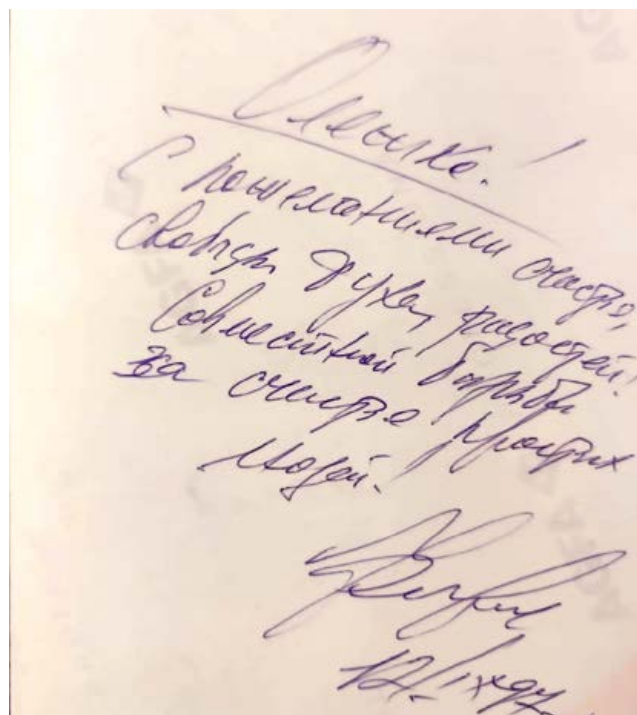 Оленька!
С пожеланиями счастья,
свободы духа, радостей!
Совместной борьбы
за счастье простых
людей!
AGFA
AGFA
AGFA